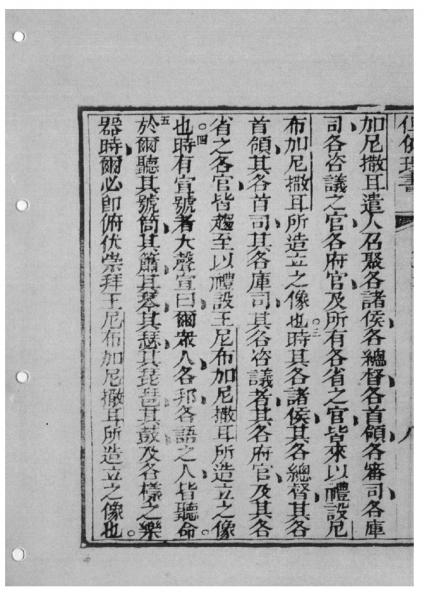 加尼撒耳遣人召聚各諸侯各總督各首領各審司各庫
司各咨議之官各府官及所有各省之官皆來以禮設尼
布加尼撒耳所造立之像也。三時其各諸侯其各總督其各
首領其各首司其各庫司其各咨議者其各府官及其各
省之各官皆趨至以禮設王尼布加尼撒耳所造立之像
也。四時有宣號者大聲宣曰爾衆人各邦各語之人皆聽命。
五於爾聽其號筒其簫其琴其瑟其琵琶其鼓及各樣之樂
器時爾必卽俯伏崇拜王尼布加尼撒耳所造立之像也。